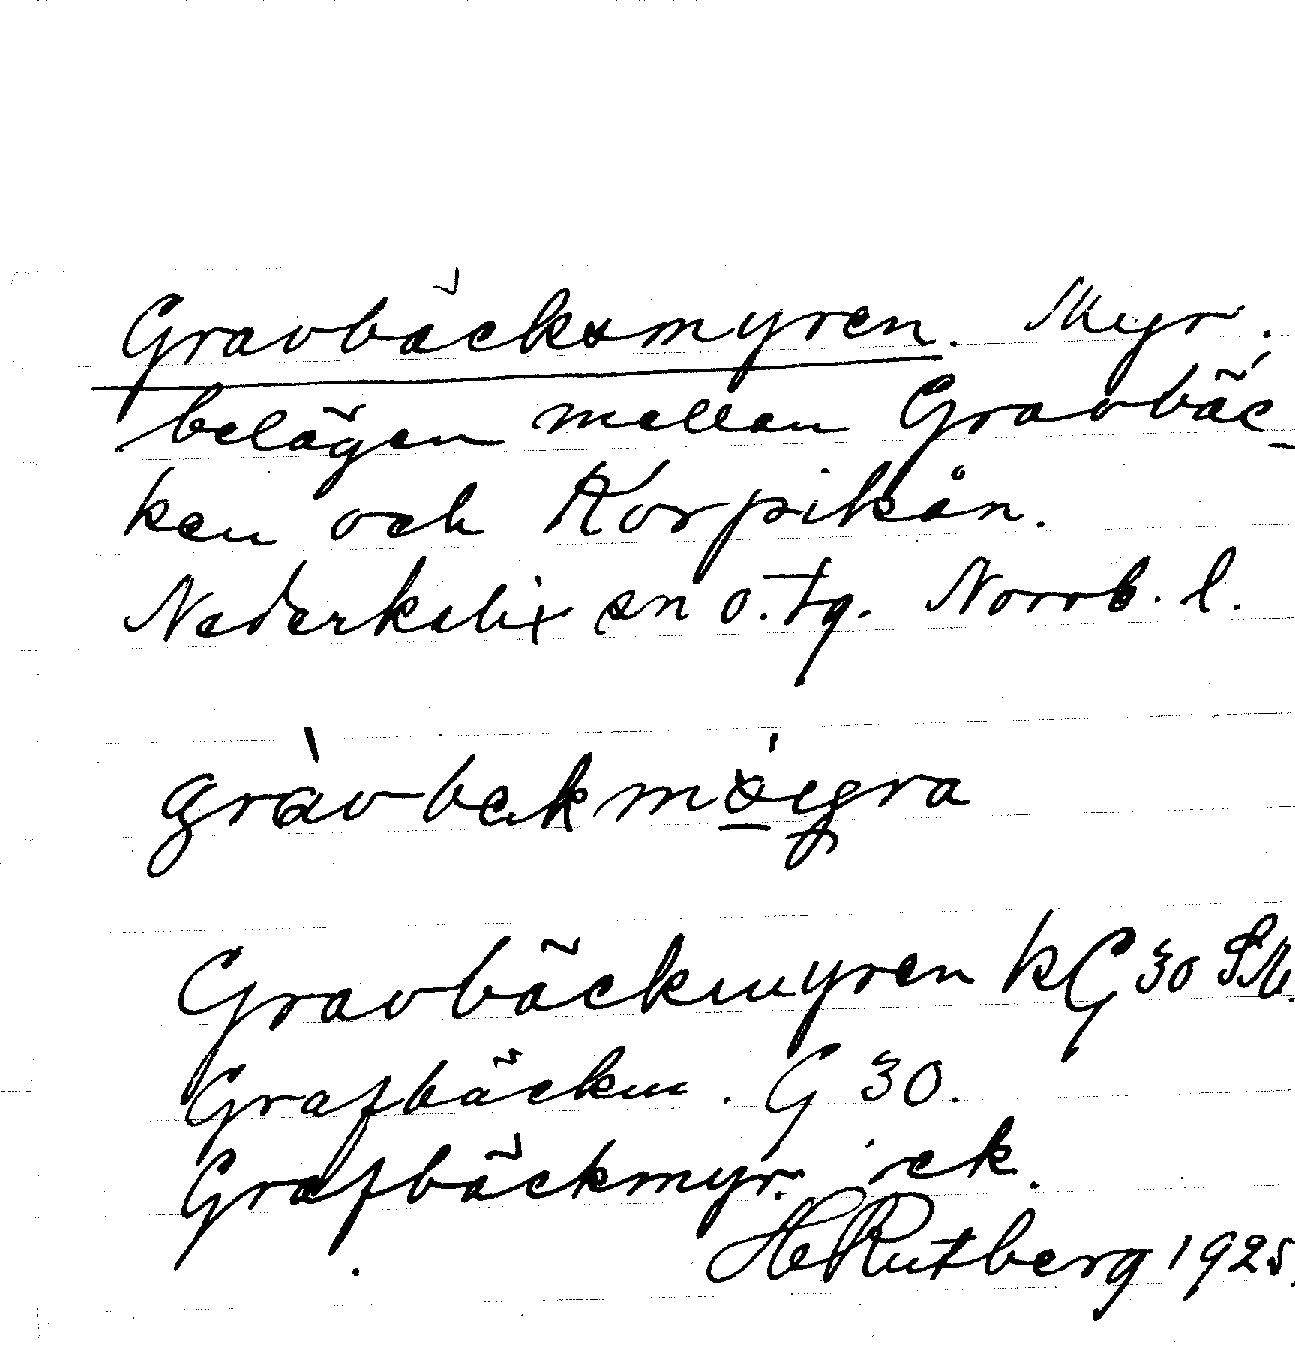 Gravbäcksmyren. Myr.
belägen mellan Gravbäc-
ken och Korpikån.
Nederkalix sn o. tg. Norrb. l.
Gravbäckmyren kG 30 SM.
Grafbäcken. G 30.
Grafbäckmyr. rek.
HRutberg 1925.